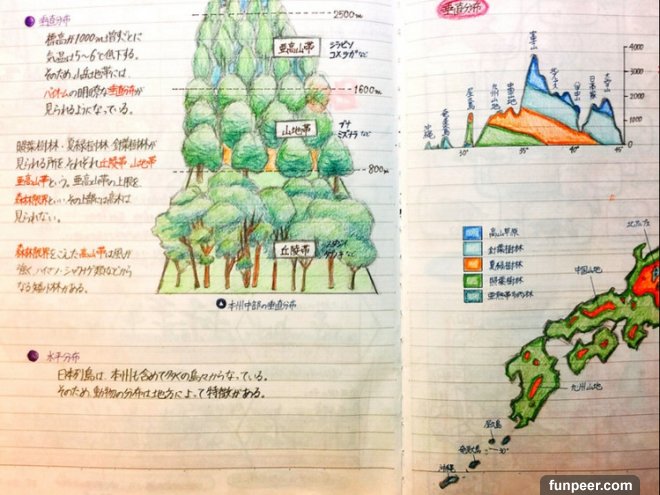 垂直分布
標高が1000m増すごとに
気温は5～6℃低下する。
そのため、山岳地帯には、
バイオームの明瞭な垂直分布が
見られるようになっている。
照葉樹林・夏緑樹林・針葉樹林が
見られる所をそれぞれ丘陵帯・山地帯
亜高山帯という。亜高山帯の上限を、
森林限界といい、その上部には高木は
見られない。
森林限界をこえた高山帯は風が
強く、ハイマツ・シャクナゲ類などから
なる矮小林がある。
2500m
亜高山帯
シラビソ
コメツガ など
1600m
山地帯
ブナ
ミズナラ など
800m
丘陵帯
スダジイ
など
本州中部の垂直分布
水平分布
日本列島は、本州も含めて多くの島々からなっている。
そのため、動物の分布は地方によって特徴がある。
垂直分布
沖縄
奄美大島
屋久島
九州山地
中国山地
富士山
北アルプス
八甲田山
日本
大雪山
4000
3000
2000
1000
0
30°
35°
40°
45°
高山草原
針葉樹林
夏緑樹林
照葉樹林
亜熱帯多雨林
北アルプス
中国山地
九州山地
屋久島
30°
奄美大島
沖縄
funpeer.com